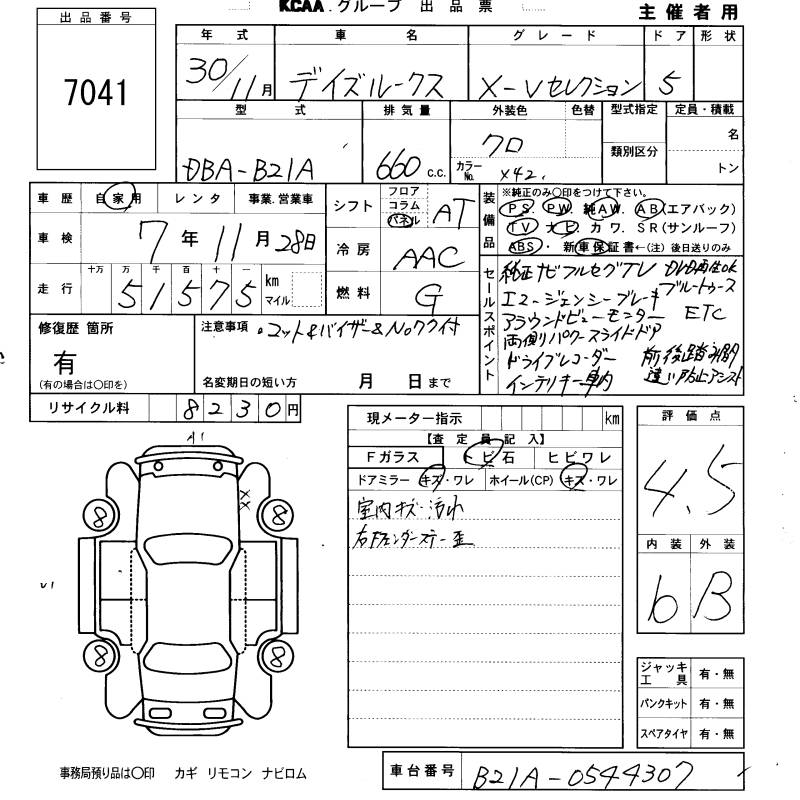 KCAA.グループ 出品票
主催者用
出品番号
7041
年式 車名 グレード ドア 形状
30/11月 デイズルークス X-Vセレクション 5
型式 排気量 外装色 色替 型式指定 定員・積載
DBA-B21A 660c.c. クロ 類別区分 名
カラーNo. X42. トン
車歴 自家用 レンタ 事業.営業車
車検 7年11月28日
走行 十万 万 千 百 十 一 km マイル
51575
シフト フロア コラム パネル AT
冷房 AAC
燃料 G
装備品
※純正のみ〇印をつけて下さい。
PS. PW. 純AW. AB(エアバック)
TV ナビ カワ. SR(サンルーフ)
ABS・新車保証書←(注)後日送りのみ
セールスポイント
純正ナビフルセグTV DVD再生OK
エマージェンシーブレーキ ブルートゥース
アラウンドビューモニター ETC
両側パワースライドドア
ドライブレコーダー 前後踏み間
インテリキー車内 違い防止アシスト
修復歴 箇所
有
(有の場合は〇印を)
注意事項 .マット&バイザー&Noワク付
名変期日の短い方 月 日まで
リサイクル料 8230円
現メーター指示 km
【査定員記入】
Fガラス トビ石 ヒビワレ
ドアミラー キズ・ワレ ホイール(CP) キズ・ワレ
室内キズ・汚れ
右Fフェンダーステー歪
評価点
4.5
内装 外装
6 B
A1
XX
8 8
U1
8 8
ジャッキ工具 有・無
パンクキット 有・無
スペアタイヤ 有・無
事務局預り品は〇印 カギ リモコン ナビロム
車台番号 B21A-0544307